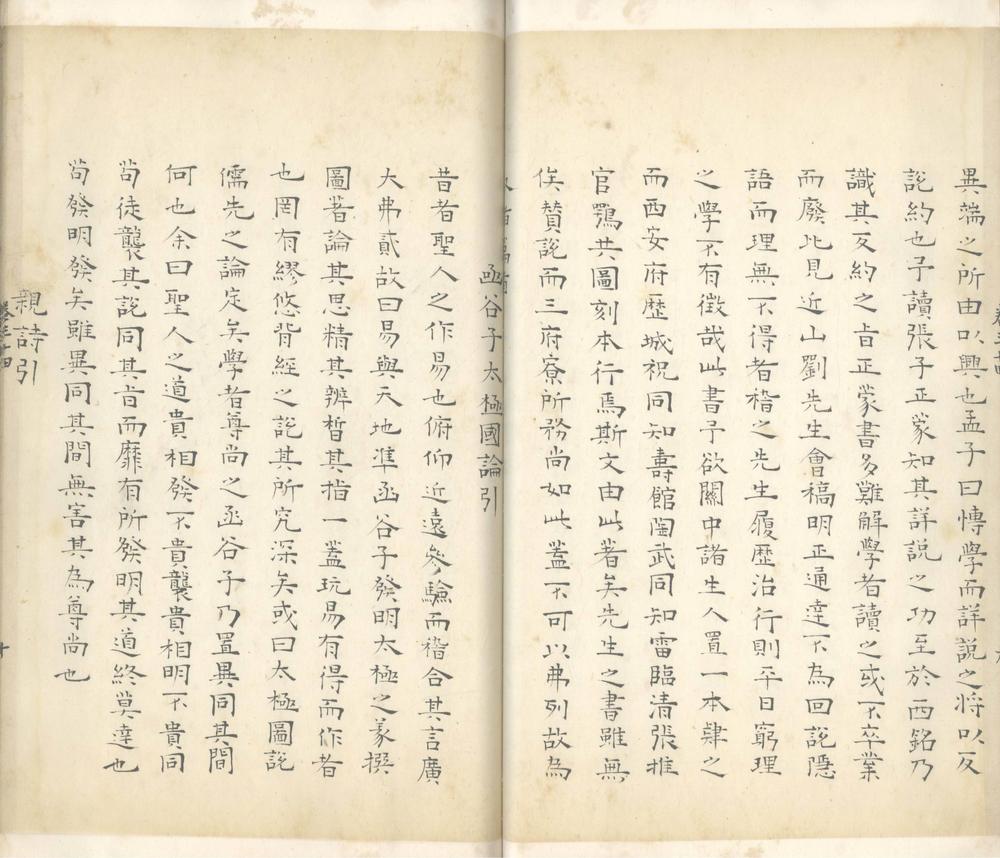 異端之所由以興也孟子曰慱學而詳説之將以反
説約也予讀張子正蒙知其詳説之功至於西銘乃
識其反約之旨正蒙書多難解學者讀之或不卒業
而廢比見近山劉先生會稿明正通達不為回説隱
語而理無不得者稽之先生履歷治行則平日窮理
之學不有徵哉此書予欲關中諸生人置一本肄之
而西安府歷城祝同知壽館陶武同知雷臨清張推
官鶚共圖刻本行焉斯文由此著矣先生之書雖無
俟贊説而三府寮所務尚如此蓋不可以弗列故為
函谷子太極國論引
昔者聖人之作易也俯仰近遠參驗而稽合其言廣
大弗貳故曰易與天地凖函谷子發明太極之義撰
圖著論其思精其辨晳其指一蓋玩易有得而作者
也罔有繆悠背經之説其所究深矣或曰太極圖説
儒先之論定矣學者尊尚之函谷子乃置異同其間
何也余曰聖人之道貴相發不貴襲貴相明不貴同
茍徒襲其説同其旨而靡有所發明其道終莫達也
茍發明發矣雖異同其間無害其為尊尚也
親詩引